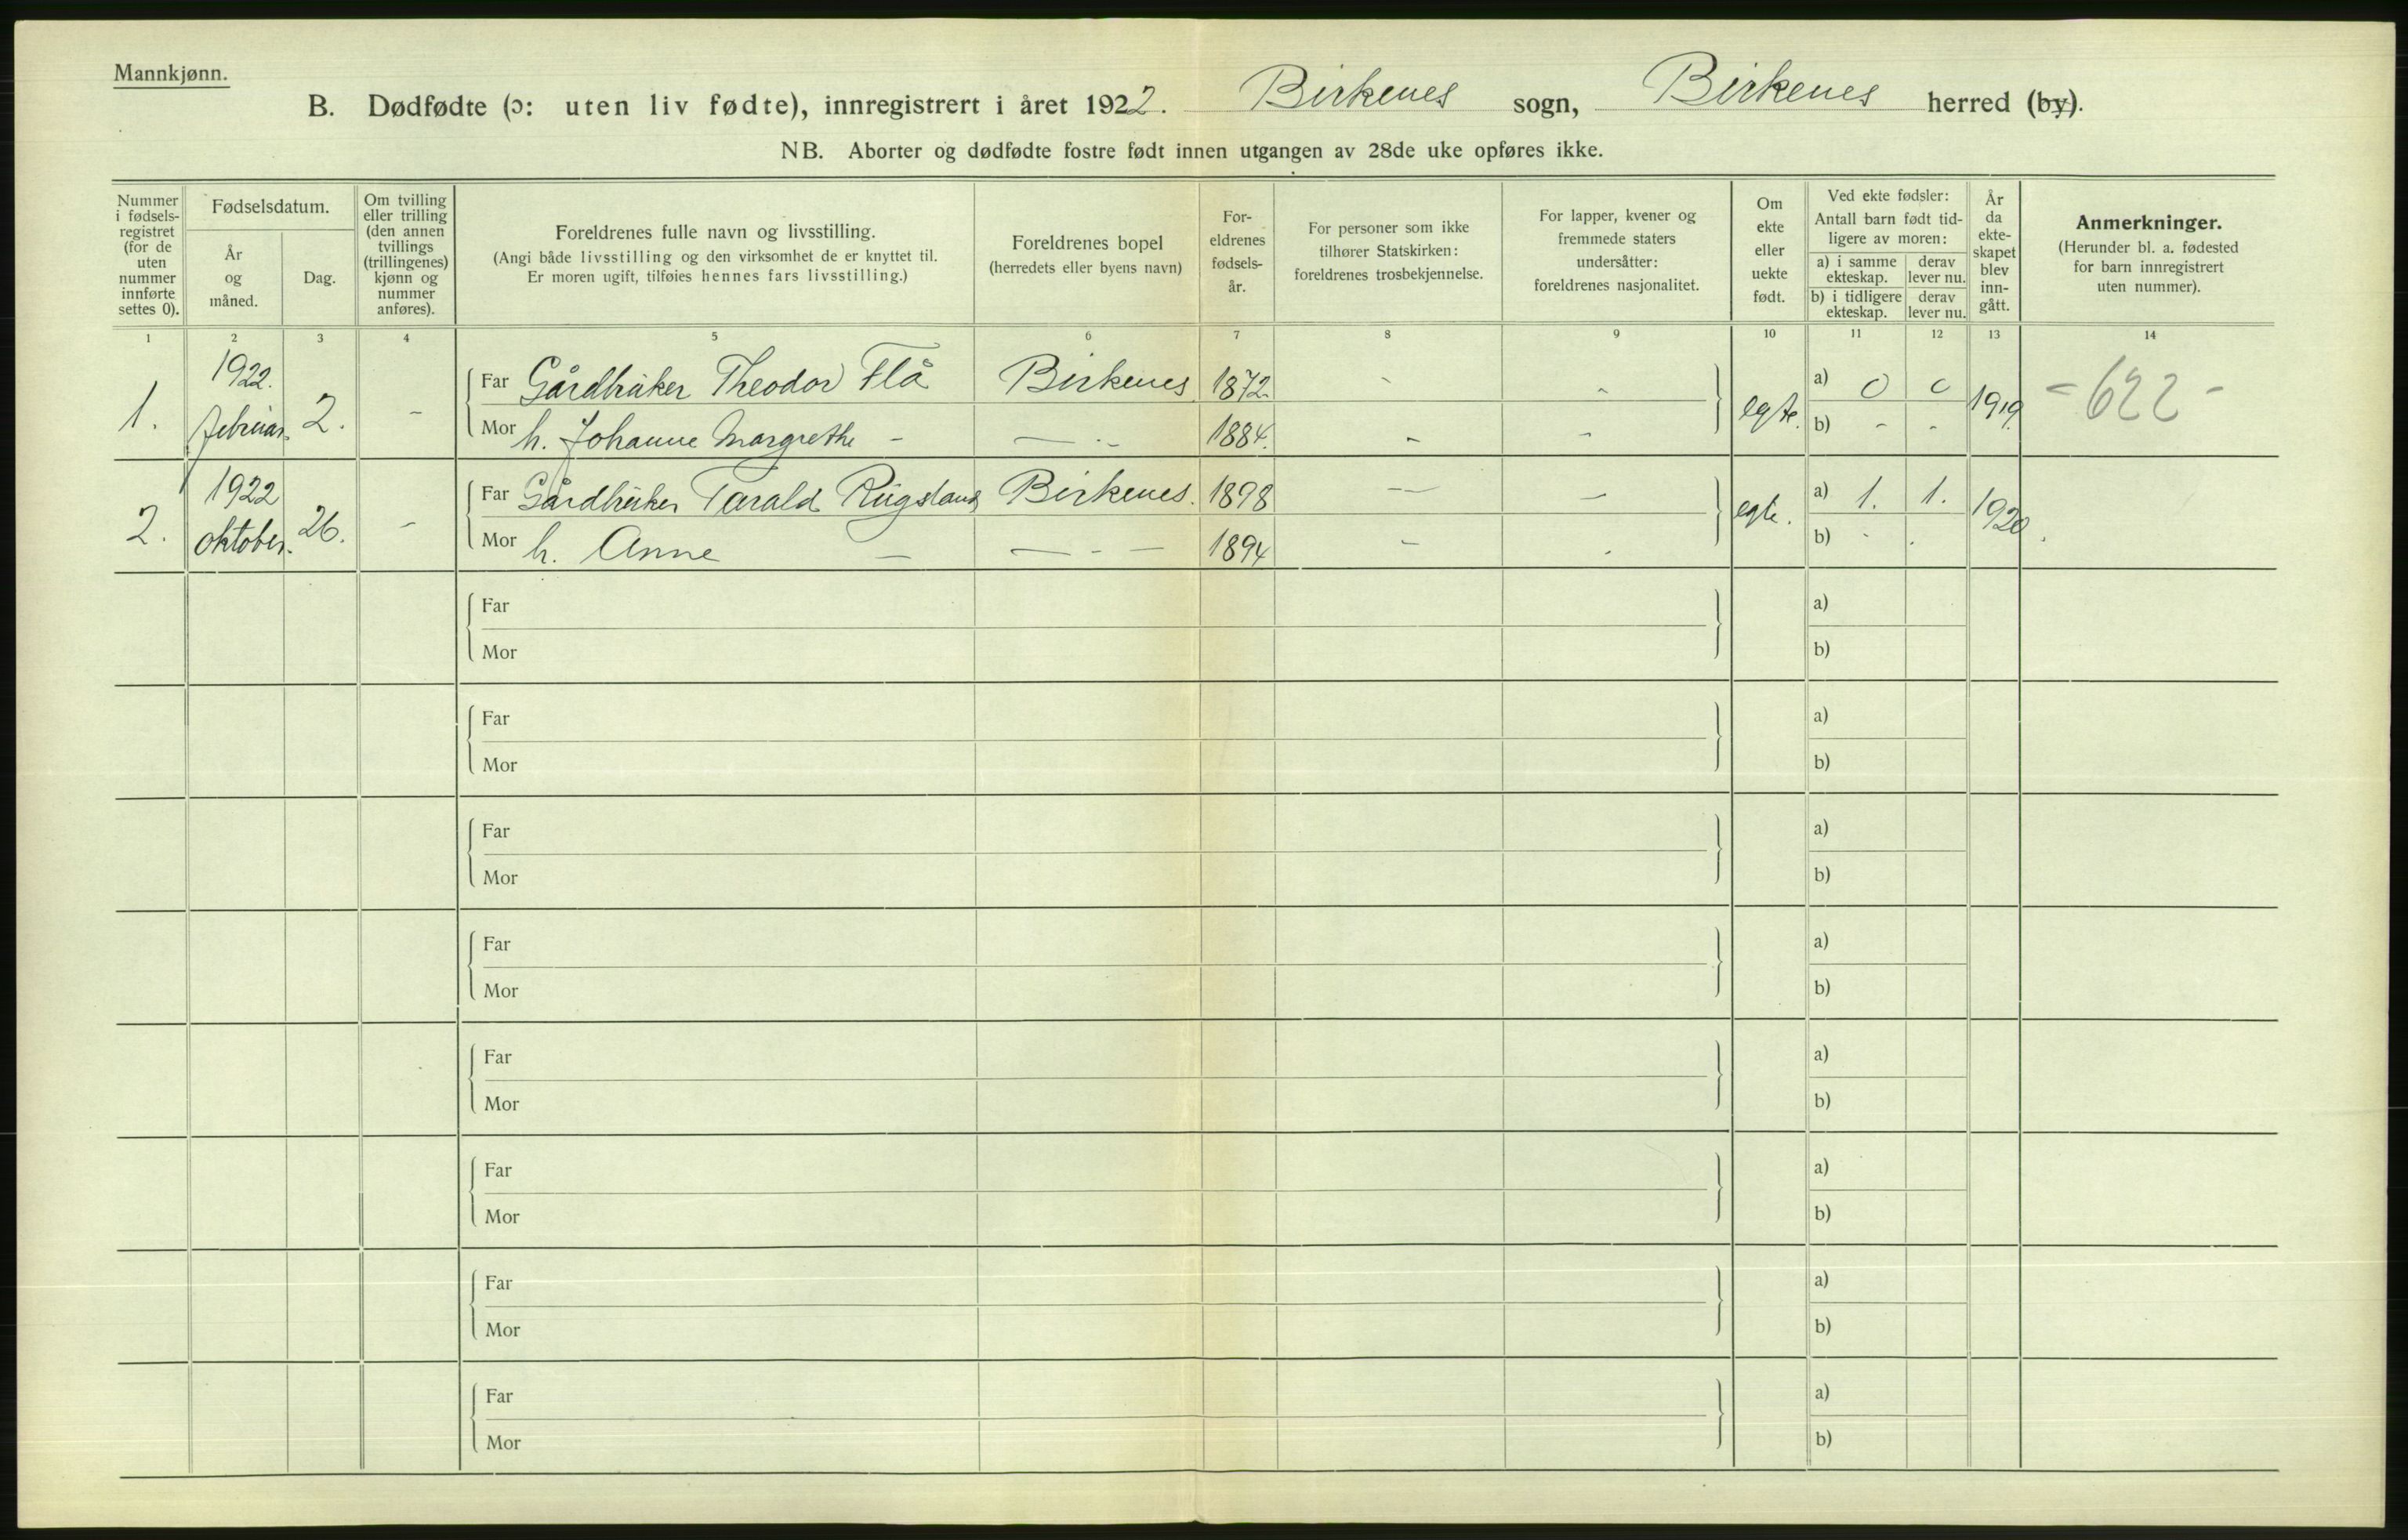 Mannkjønn.
B. Dødfødte (ɔ: uten liv fødte), innregistrert i året 1922. Birkenes sogn, Birkenes herred (by).
NB. Aborter og dødfødte fostre født innen utgangen av 28de uke opføres ikke.
Nummer i fødsels-registret (for de uten nummer innførte settes 0).
Fødselsdatum.
År og måned.
Dag.
Om tvilling eller trilling (den annen tvillings (trillingenes) kjønn og nummer anføres).
Foreldrenes fulle navn og livsstilling.
(Angi både livsstilling og den virksomhet de er knyttet til.
Er moren ugift, tilføies hennes fars livsstilling.)
Foreldrenes bopel
(herredets eller byens navn)
For-eldrenes fødsels-år.
For personer som ikke tilhører Statskirken: foreldrenes trosbekjennelse.
For lapper, kvener og fremmede staters undersåtter: foreldrenes nasjonalitet.
Om ekte eller uekte født.
Ved ekte fødsler:
Antall barn født tid-ligere av moren:
a) i samme ekteskap.
derav lever nu.
b) i tidligere ekteskap.
derav lever nu.
År da ekte-skapet blev inn-gått.
Anmerkninger.
(Herunder bl. a. fødested for barn innregistrert uten nummer).
1 2 3 4 5 6 7 8 9 10 11 12 13 14
1. 1922. februar. 2. - Far Gårdbruker Theodor Flå Birkenes 1872. - - egte. a) 0 0 1919 - 622 -
Mor h. Johanne Margrethe - — . - 1884. - - b) - -
2. 1922 oktober. 26. - Far Gårdbruker Tarald Rugsland Birkenes. 1898 — — egte. a) 1. 1. 1920.
Mor h. Anne — — - — 1894 - . b) - .
Far a)
Mor b)
Far a)
Mor b)
Far a)
Mor b)
Far a)
Mor b)
Far a)
Mor b)
Far a)
Mor b)
Far a)
Mor b)
Far a)
Mor b)